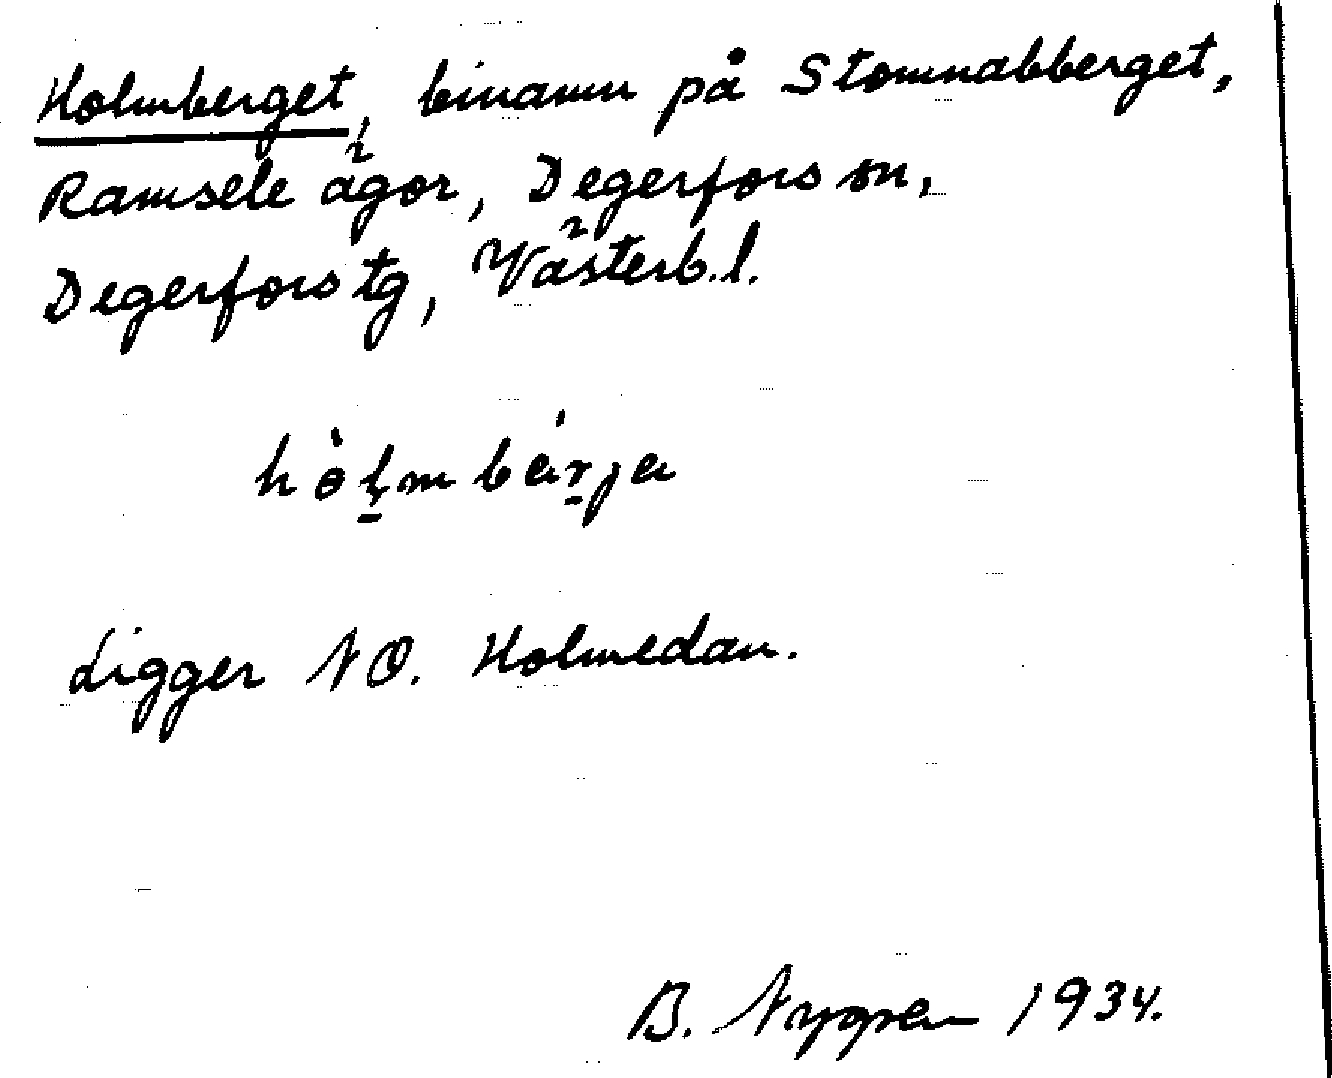 Holmberget, binamn på Stomnabberget,
Ramsele ägor, Degerfors sn,
Degerfors tg, Västerb.l.
hòl̠mbár̠ja
Ligger NO. Holmedan.
B. Nygren 1934.